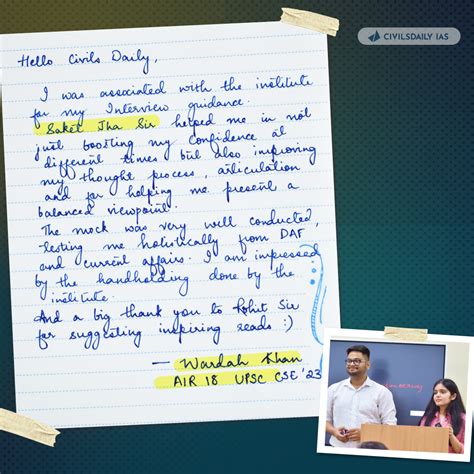 CIVILSDAILY IAS
Hello Civils Daily,
I was associated with the institute
for my Interview guidance.
Saket Jha Sir helped me in not
just boosting my confidence at
different times but also improving
my thought process, articulation
and for helping me present a
balanced viewpoint.
The mock was very well conducted,
testing me holistically from DAF
and current affairs. I am impressed
by the handholding done by the
institute.
And a big thank you to Rohit Sir
for suggesting inspiring reads :)
— Wardah Khan
AIR 18 UPSC CSE '23